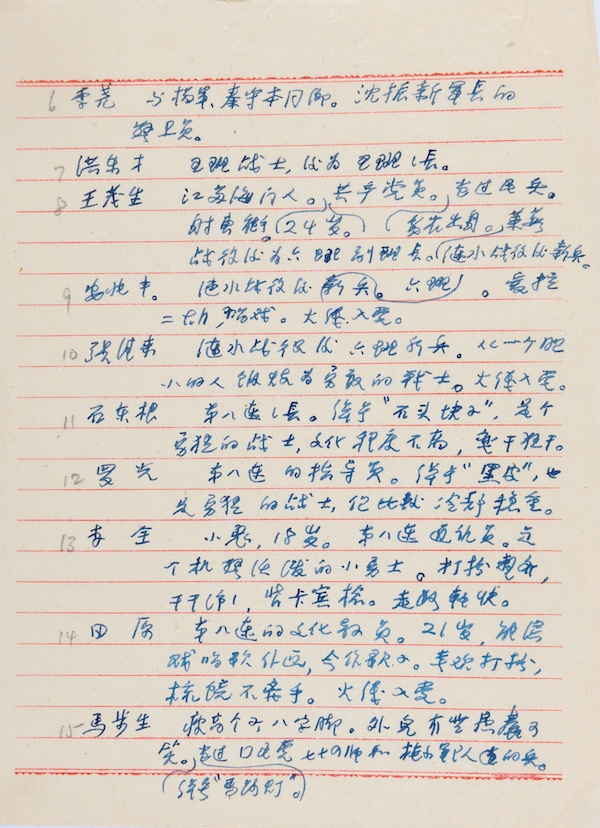 6 李尧 与杨军、秦守本同乡。沈振新军长的
警卫员。
7 洪东才 四班战士,后为四班班长。
8 王茂生 江苏海门人。共产党员。当过民兵。
射击能手。(24岁。) 莱芜
战役后为六班副班长。(涟水战役后新兵。
9 安兆丰。涟水战役后(新兵)。六班。
。火线入党。
10 张德来 涟水战役后六班新兵。从一个胆
小的人锻炼为勇敢的战士。火线入党。
11 石东根 第八连连长。绰号“石头块子”,是个
勇猛的战士,文化程度不高,
12 罗光 第八连的指导员。绰号“黑皮”,也
是勇猛的战士,但比较冷静稳重。
13 李全 小鬼,18岁。第八连通讯员。是
个机智活泼的小勇士。打扮
干干净净,背卡宾枪。走路轻快。
14 田原 第八连的文化教员。21岁,能演
戏唱歌作画,会作歌子。喜欢打扮,
梳镜不离手。火线入党。
15 马步生 瘦高个子八字脚。外貌有些愚蠢可
笑。当过国民党七十四师和的兵。
(绰号“马路灯”。)